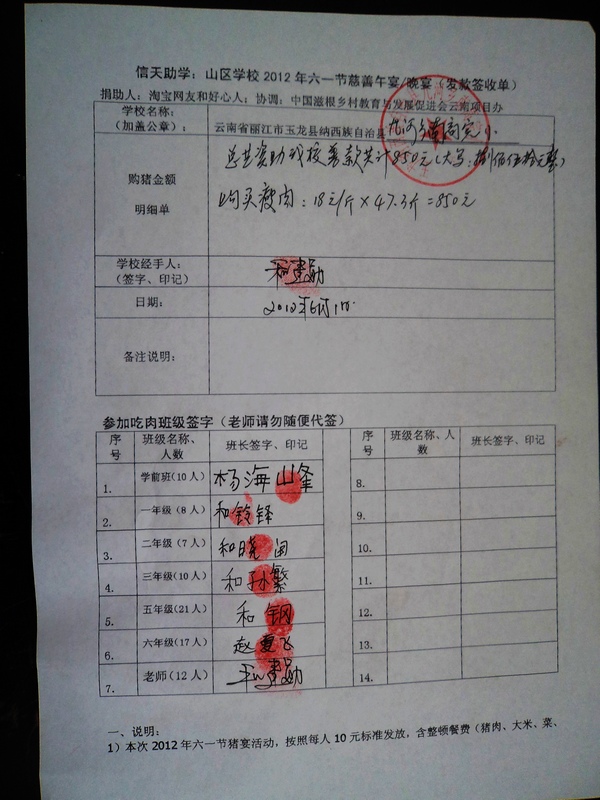 信天助学：山区学校2012年六一节慈善午宴/晚宴（发款签收单）
捐助人：淘宝网友和好心人；协调：中国滋根乡村教育与发展促进会云南项目办
学校名称：
（加盖公章）：
云南省丽江市玉龙县纳西族自治县 南高完小
购猪金额
明细单
总共资助我校善款共计850元（大写：捌佰伍拾元整）
购买瘦肉：18元/斤×47.3斤=850元
学校经手人：
（签字、印记）
和建勋
日期：
2012年6月1日
备注说明：
参加吃肉班级签字（老师请勿随便代签）
序号 班级名称、人数 班长签字、印记 序号 班级名称、人数 班长签字、印记
1. 学前班(10人) 杨海山峰 8.
2. 一年级(8人) 和铃铎 9.
3. 二年级(7人) 和晓 10.
4. 三年级(10人) 和孙繁 11.
5. 五年级(21人) 和钢 12.
6. 六年级(17人) 赵夏飞 13.
7. 老师(12人) 和建勋 14.
一、说明：
1）本次2012年六一节猪宴活动，按照每人10元标准发放，含整顿餐费（猪肉、大米、菜、